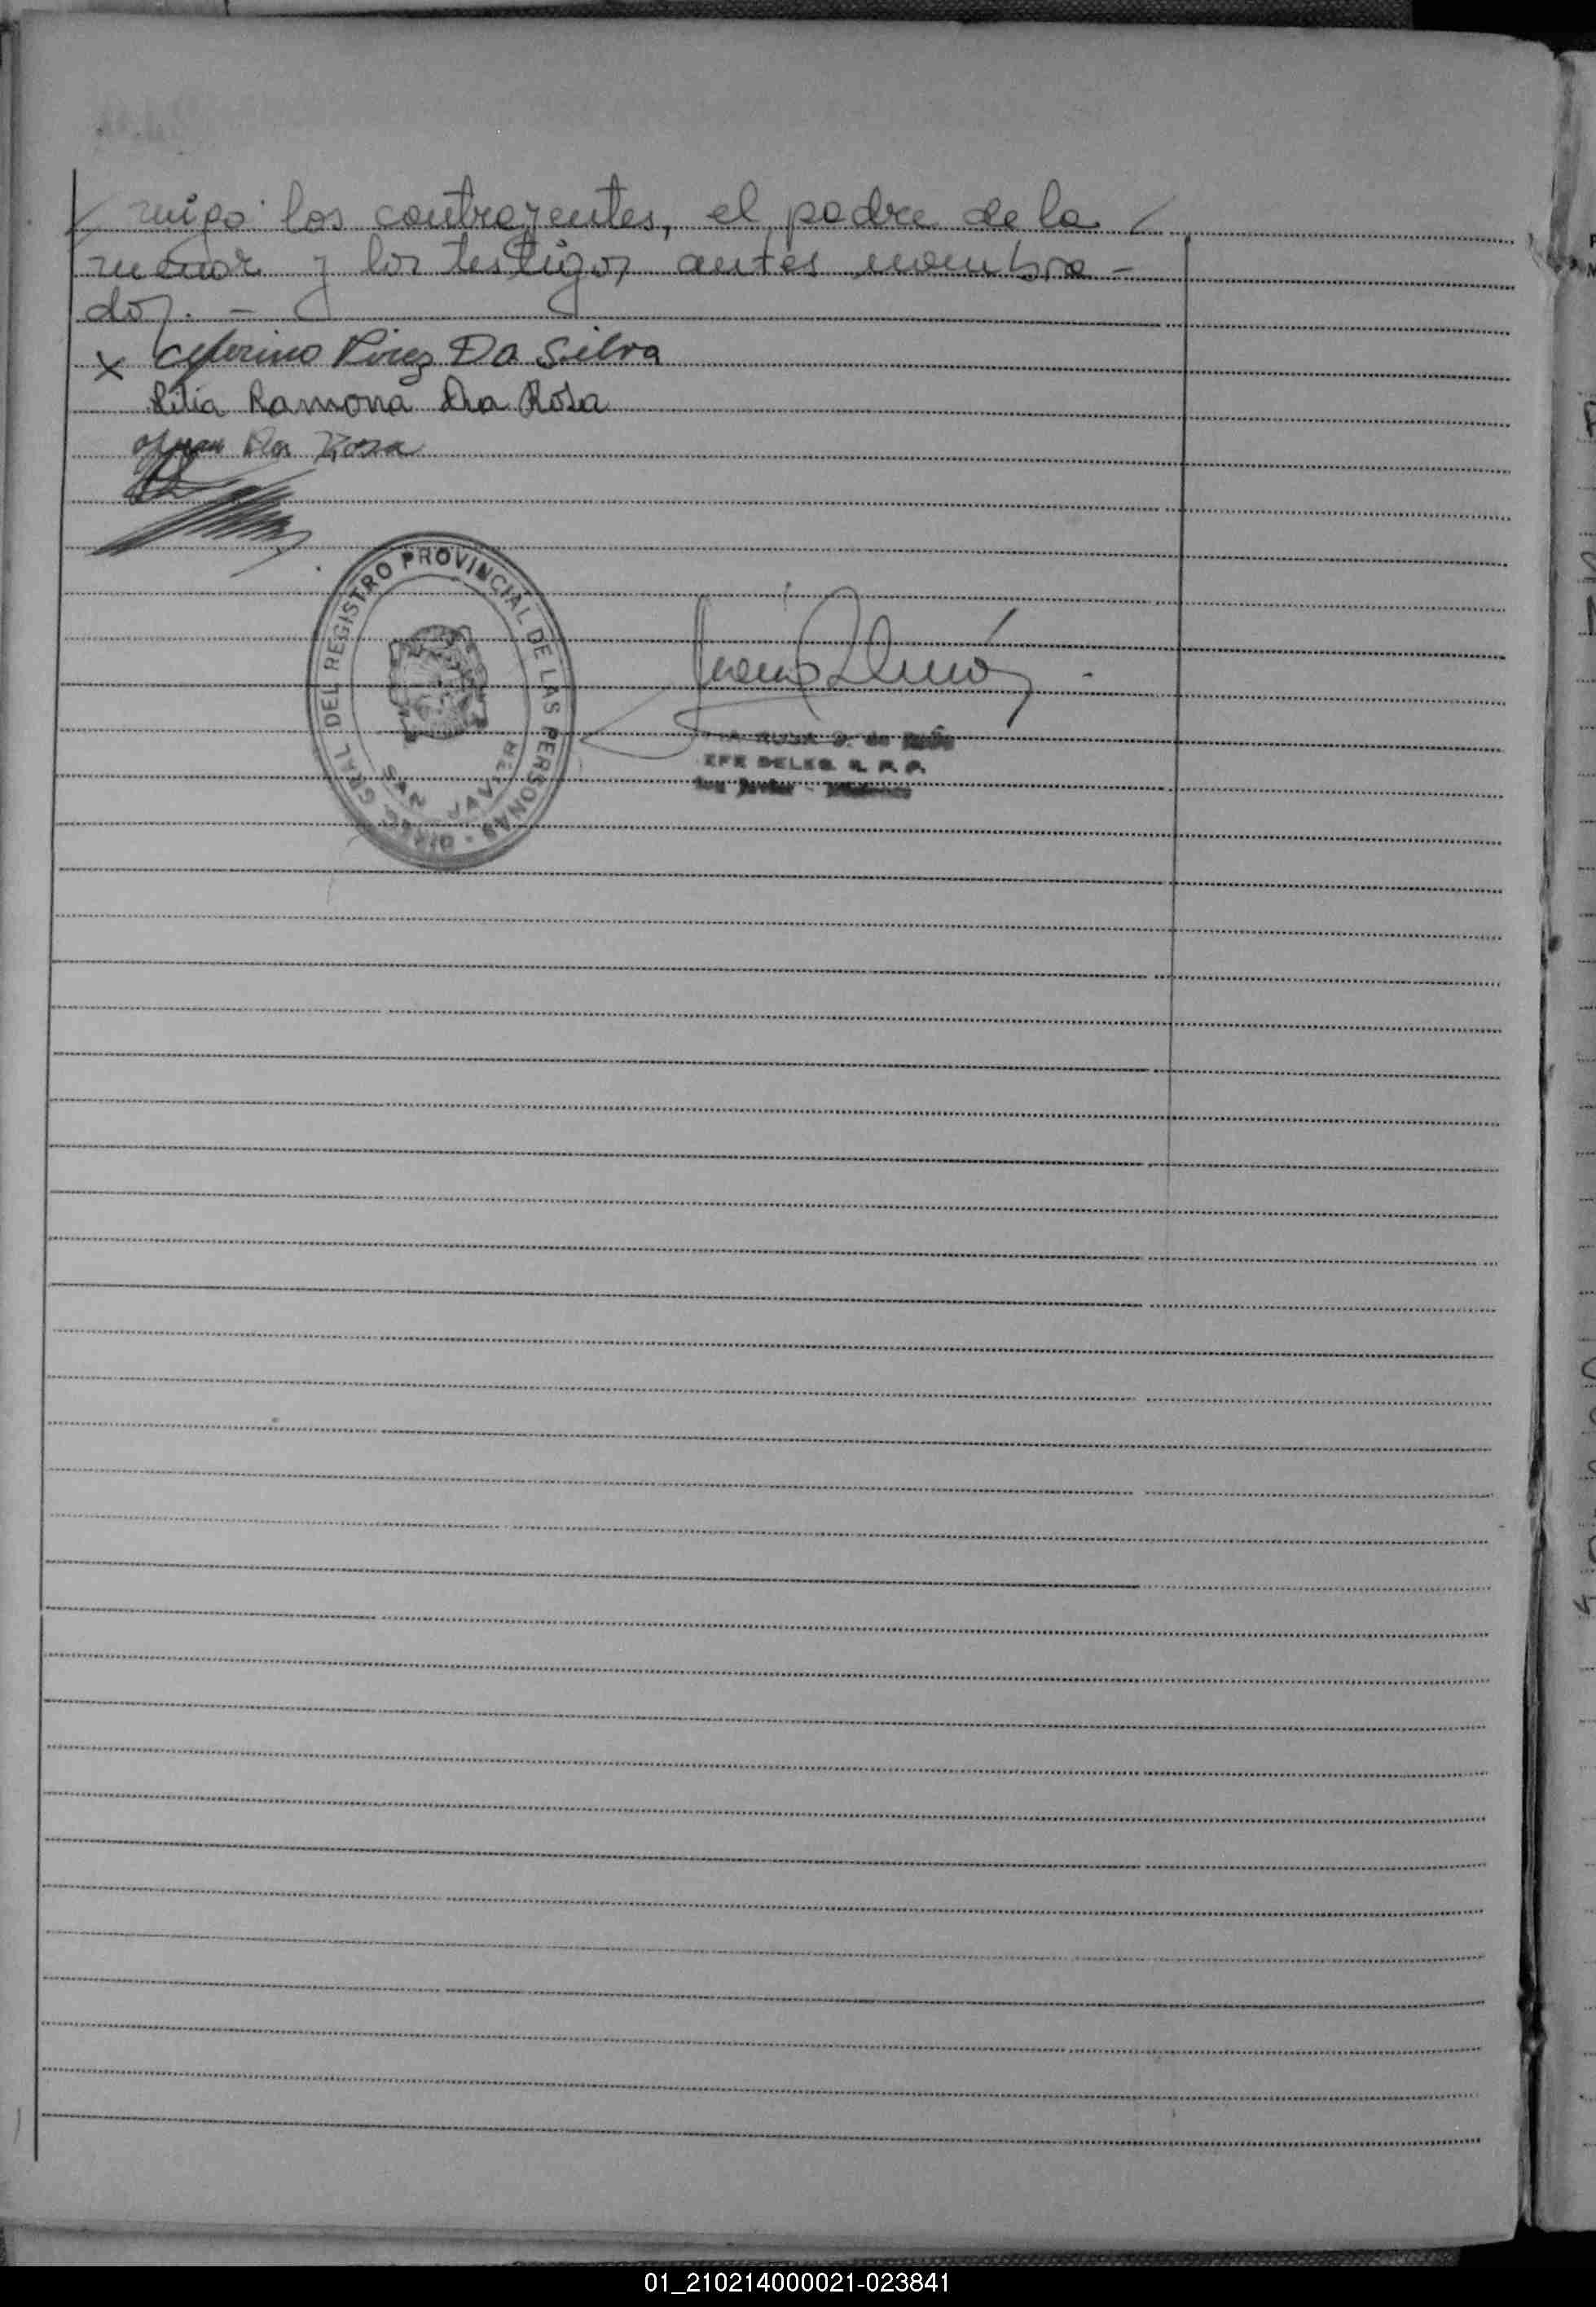 / migo los contrayentes, el padre de la /
menor y los testigos antes nombra-
dos. -
x Ceferino Pirez Da Silva
Lilia Ramona Da Rosa
Juan Da Rosa
DIREC. GRAL. DEL REGISTRO PROVINCIAL DE LAS PERSONAS
SAN JAVIER
ROSA de
EFE DELEG. R. P. P.
01_210214000021-023841